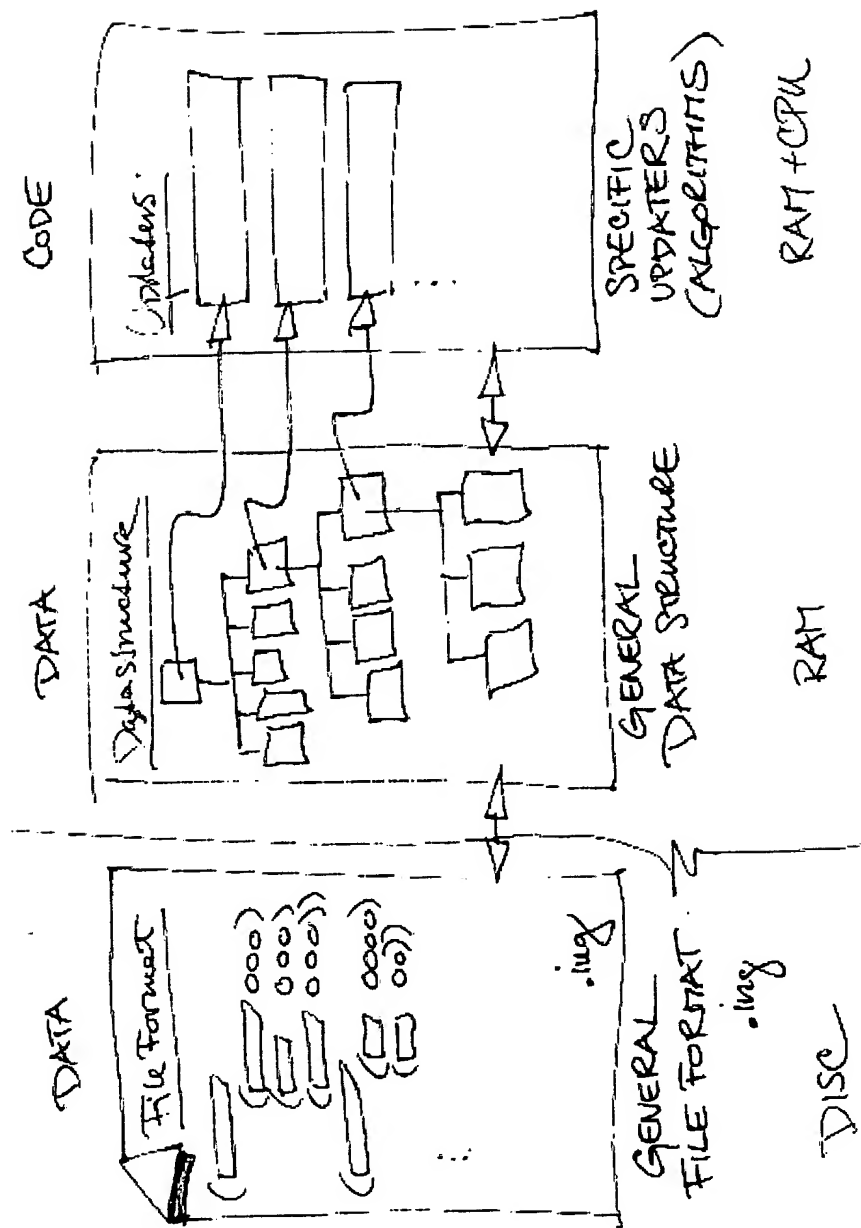 DATA
File Format
( ( ooo)
( ooo)
( ooo))
( ( oooo)
( oo))
...
.ing
GENERAL
FILE FORMAT
.ing
DISC
DATA
Datastructure
GENERAL
DATA STRUCTURE
RAM
CODE
Updaters
...
SPECIFIC
UPDATERS
(ALGORITHMS)
RAM + CPU